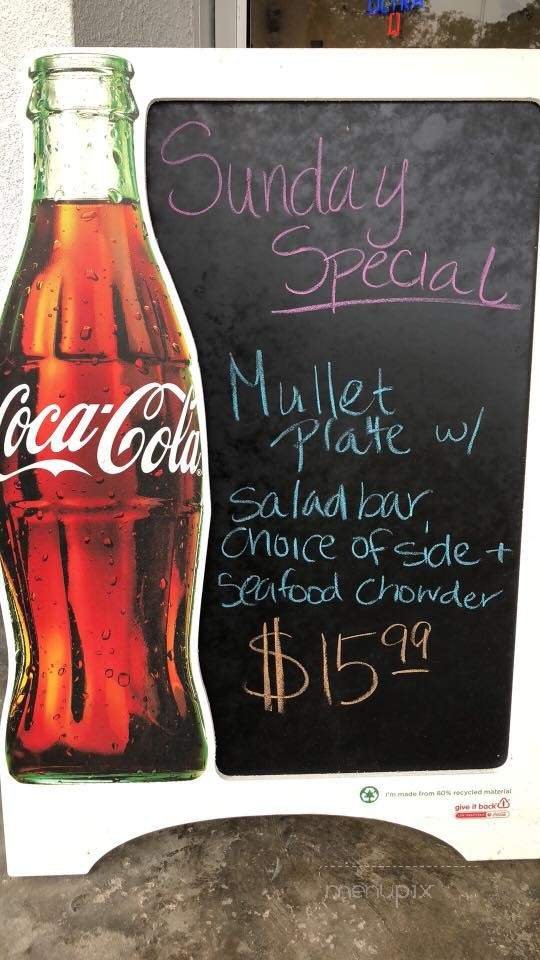 ULTRA
Sunday
Special
Mullet
Platte w/
salad bar,
choice of side +
Seafood Chowder
$15.99
Coca-Cola
I'm made from 60% recycled material
give it back
menupix